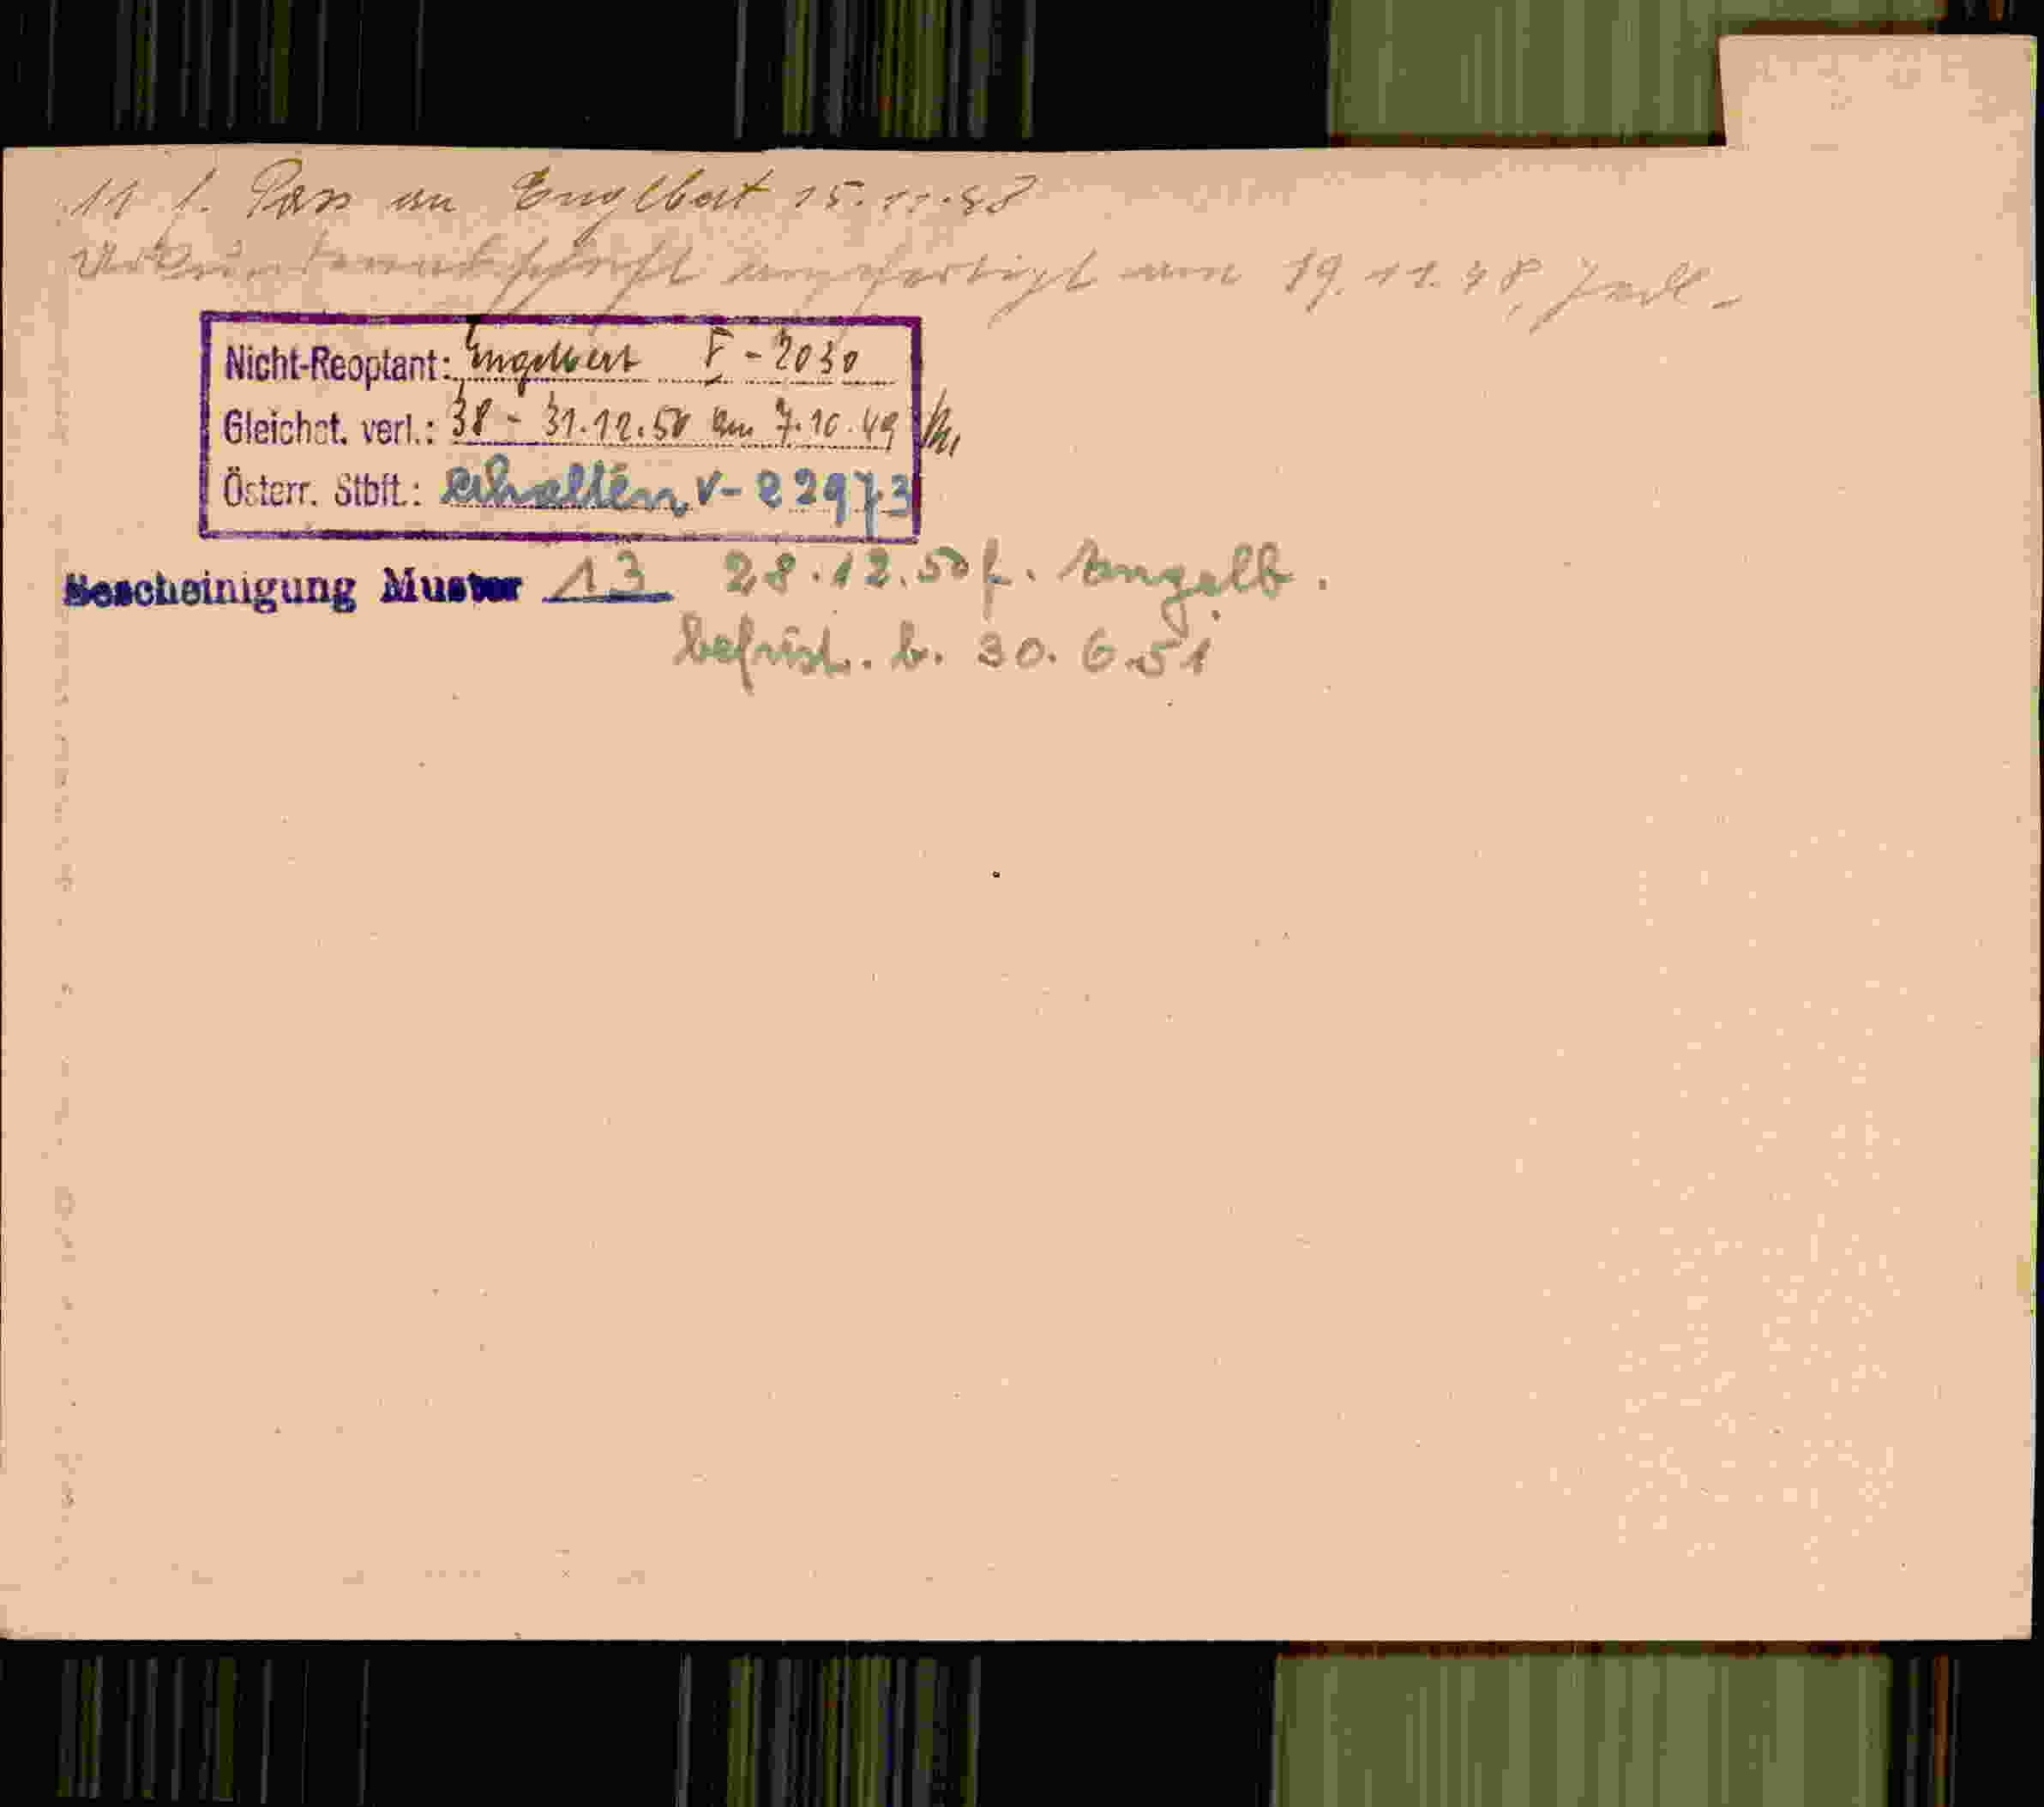 11 1. Pass an Englbert 15.11.48
angefertigt am 19.11.48
Nicht-Reoptant: Engelbert V-2030
Gleichst. verl.: 38 - 31.12.50 am 7.10.49
Österr. Stbft.: erhalten V-22973
Bescheinigung Muster 13 28.12.50 f. Engelb.
befrist. b. 30.6.51